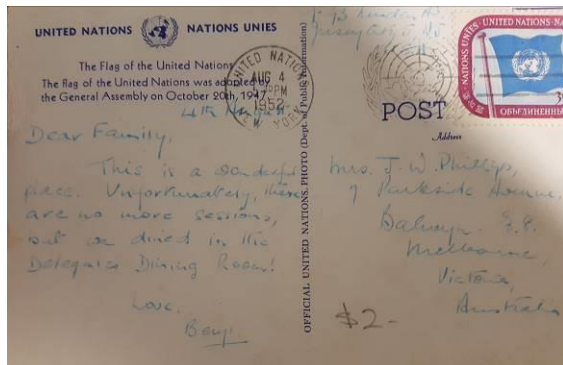 UNITED NATIONS NATIONS UNIES
The Flag of the United Nations
The flag of the United Nations was adopted by
the General Assembly on October 20th, 1947.
4th August
Dear Family,
This is a wonderful
place. Unfortunately, there
are no more sessions,
but we dined in the
Delegates Dining Room!
Love,
OFFICIAL UNITED NATIONS PHOTO (Dept. of Public Information)
UNITED NATIONS
AUG 4
PM
1952
NEW YORK
UNITED NATIONS
NATIONS UNIES
ОБЪЕДИНЕННЫ
POST
Address
Mrs. J. W. Phillips,
7 Parkside Avenue,
Balwyn E.8.
Melbourne,
Victoria,
Australia
$2-